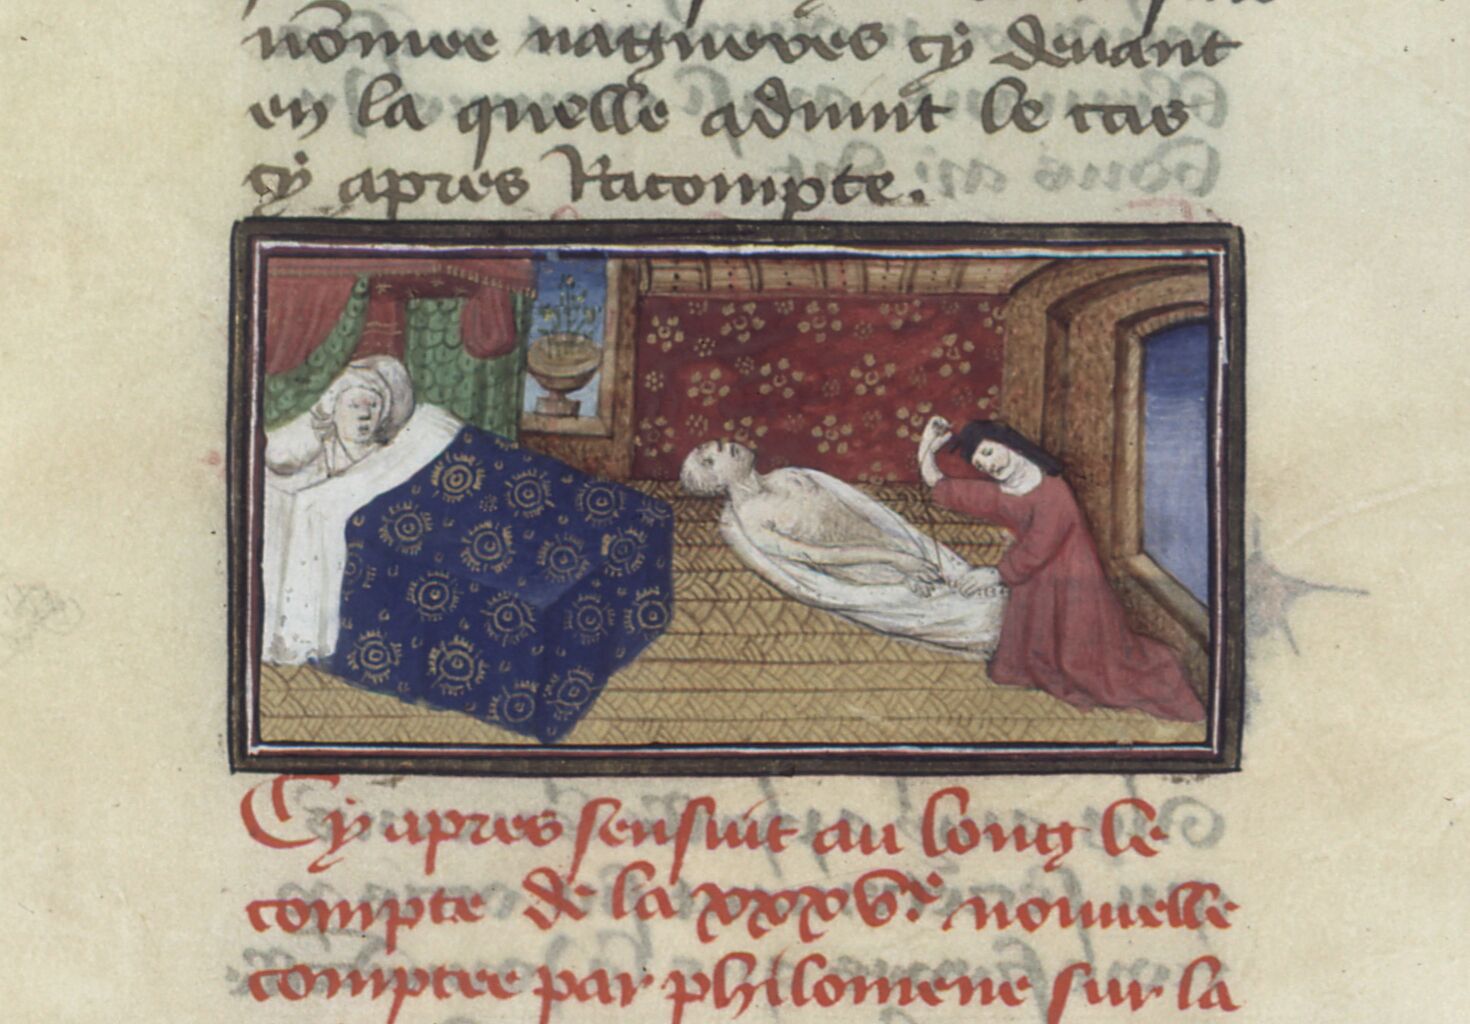 nōmee nagueres cy deuant
en la quelle aduint le cas
cy apres Racompte.
Cy apres sensuit au long le
compte de la xxxvᵉ nouuelle
comptee par philomene sur la